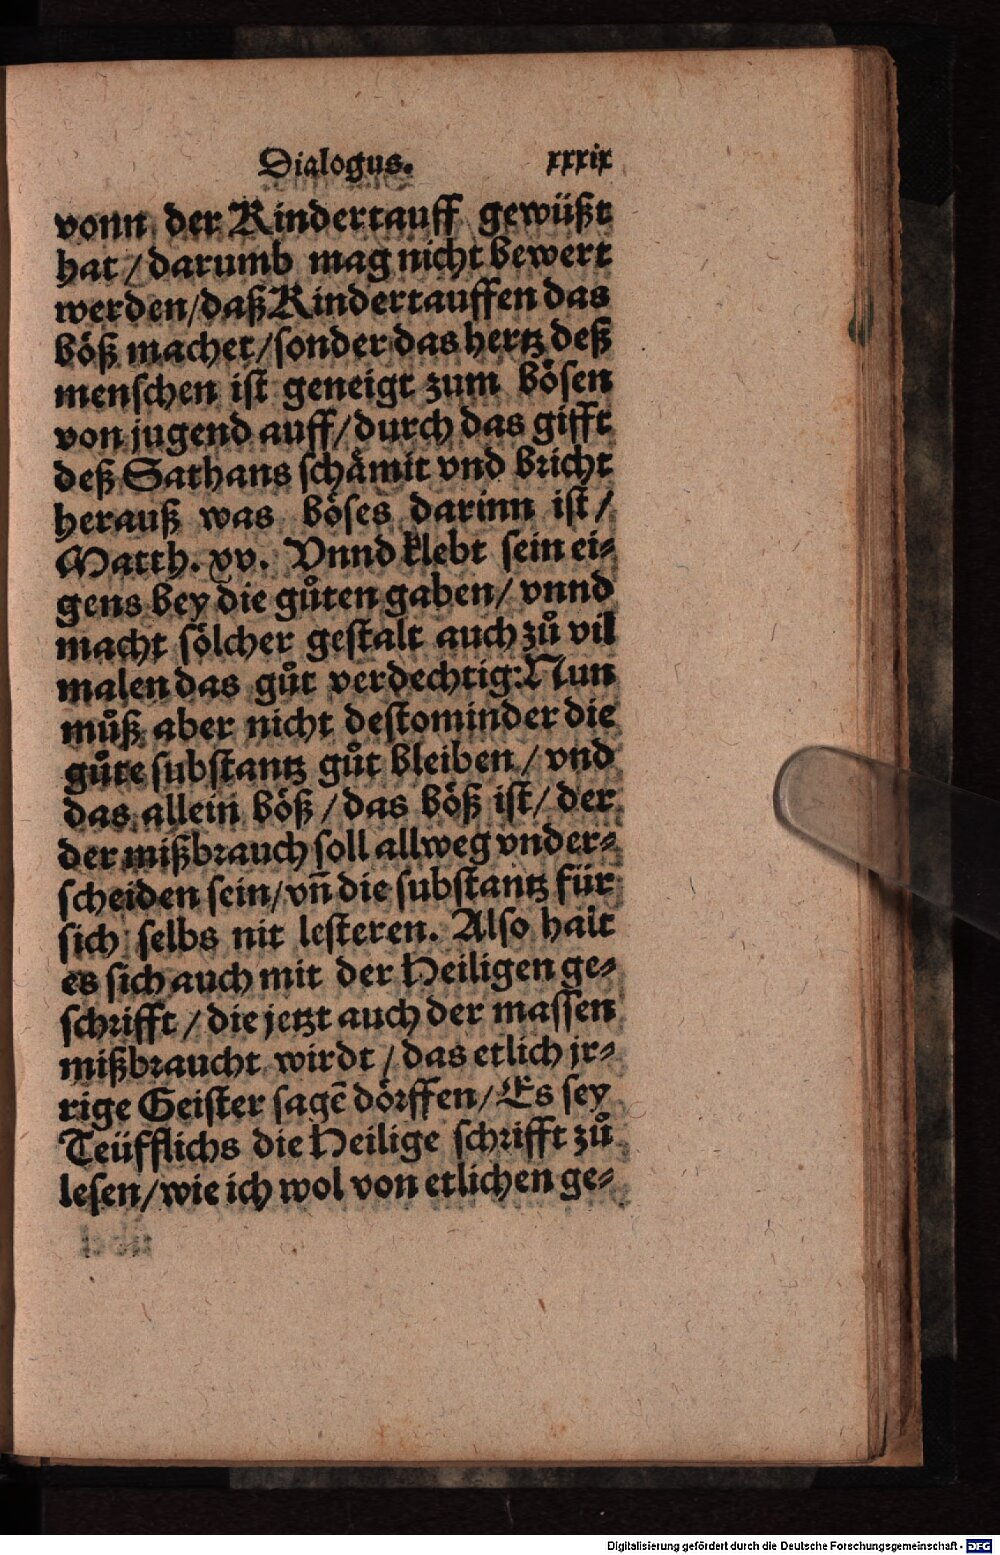 Dialogus. xxxix
vonn der Kindertauff gewüßt
hat / darumb mag nicht bewert
werden/daß Kindertauffen das
böß machet/sonder das hertz deß
menschen ist geneigt zum bösen
von jugend auff/durch das gifft
deß Sathans schämit vnd bricht
herauß was böses darinn ist/
Matth. xv. Vnnd klebt sein ei⸗
gens bey die gůten gaben/ vnnd
macht sölcher gestalt auch zů vil
malen das gůt verdechtig: Nun
můß aber nicht destominder die
gůte substantz gůt bleiben / vnd
das allein böß / das böß ist/ der
der mißbrauch soll allweg vnder⸗
scheiden sein/vñ die substantz für
sich selbs nit lesteren. Also halt
es sich auch mit der Heiligen ge⸗
schrifft / die jetzt auch der massen
mißbraucht wirdt / das etlich jr⸗
rige Geister sagẽ dörffen/ Es sey
Teüfflichs die Heilige schrifft zů
lesen/wie ich wol von etlichen ge⸗
Digitalisierung gefördert durch die Deutsche Forschungsgemeinschaft - DFG